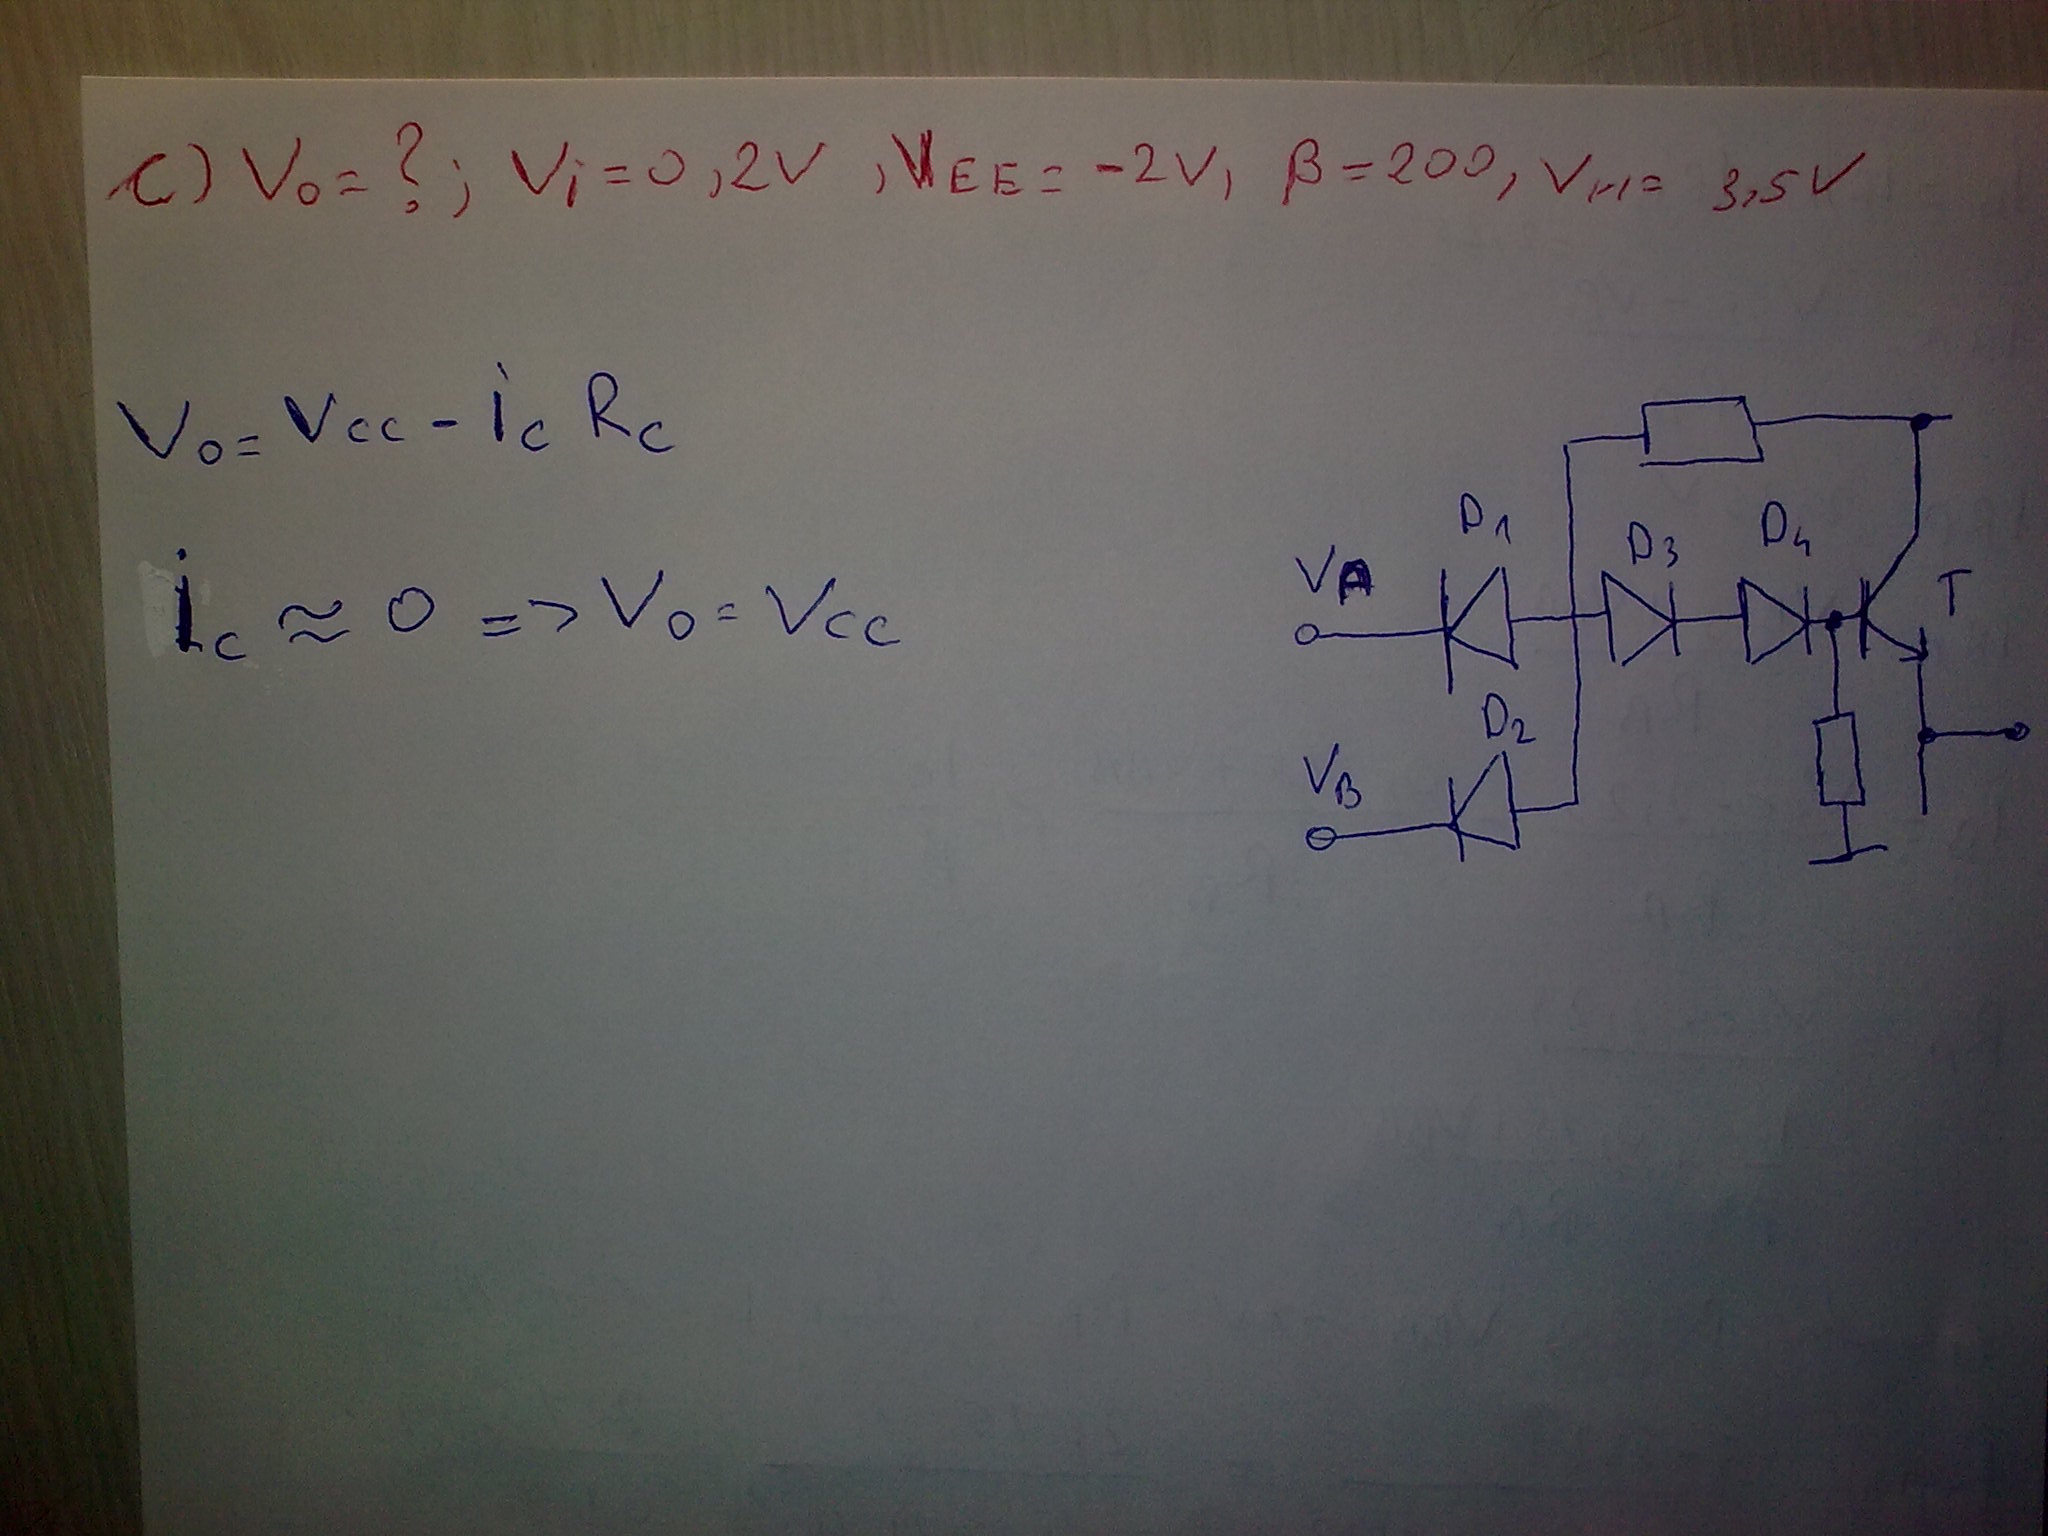 c) Vo = ?; Vi = 0,2V, VEE = -2V, β = 200, VIH = 3,5V
Vo = Vcc - ic Rc
ic ≈ 0 => Vo = Vcc
D1
D3
D4
VA
T
D2
VB